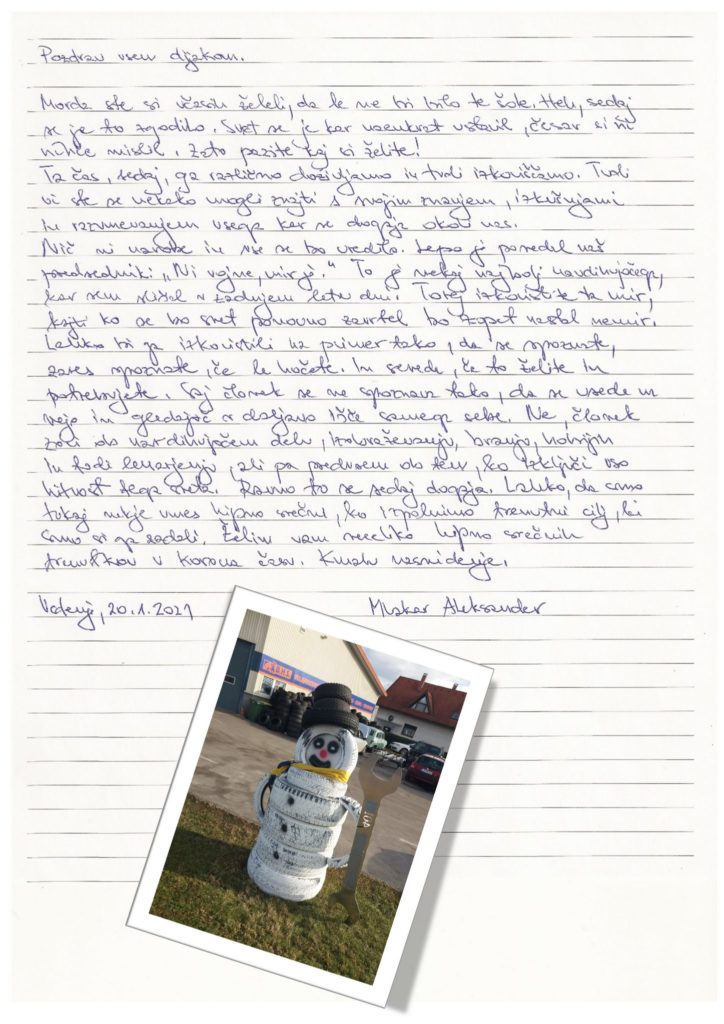 Pozdrav vsem dijakom.
Morda ste si včasih želeli, da le ne bi bilo te šole. Heh, sedaj
se je to zgodilo. Svet se je kar naenkrat ustavil, česar si ni
nihče mislil. Zato pazite kaj si želite!
Ta čas, sedaj, ga različno doživljamo in tudi izkoriščamo. Tudi
vi ste se nekako mogli znajti s svojim znanjem, izkušnjami
in razumevanjem vsega kar se dogaja okoli nas.
Nič ni narobe in vse se bo uredilo. Lepo je povedal naš
predsednik: "Ni vojne, mir je." To je nekaj najbolj navdihujočega,
kar sem slišal v zadnjem letu dni. Torej izkoristite ta mir,
kajti ko se bo svet ponovno zavrtel bo zopet nastal nemir.
Lahko bi ga izkoristili na primer tako, da se spoznate,
zares spoznate, če le hočete. In seveda, če to želite in
potrebujete. Saj človek se ne spoznava tako, da se usede na
vejo in gledajoč v daljavo išče samega sebe. Ne, človek
zori ob navdihujočem delu, izobraževanju, branju, hobijih
in tudi lenarjenju, ali pa predvsem ob tem, ko izključi vso
hitrost tega sveta. Ravno to se sedaj dogaja. Lahko, da smo
tukaj nekje vmes hipno srečni, ko izpolnimo trenutni cilj, ki
smo si ga zadali. Želim vam veliko hipno srečnih
trenutkov v Korona času. Kmalu nasvidenje.
20.1.2021 Mlakar Aleksander